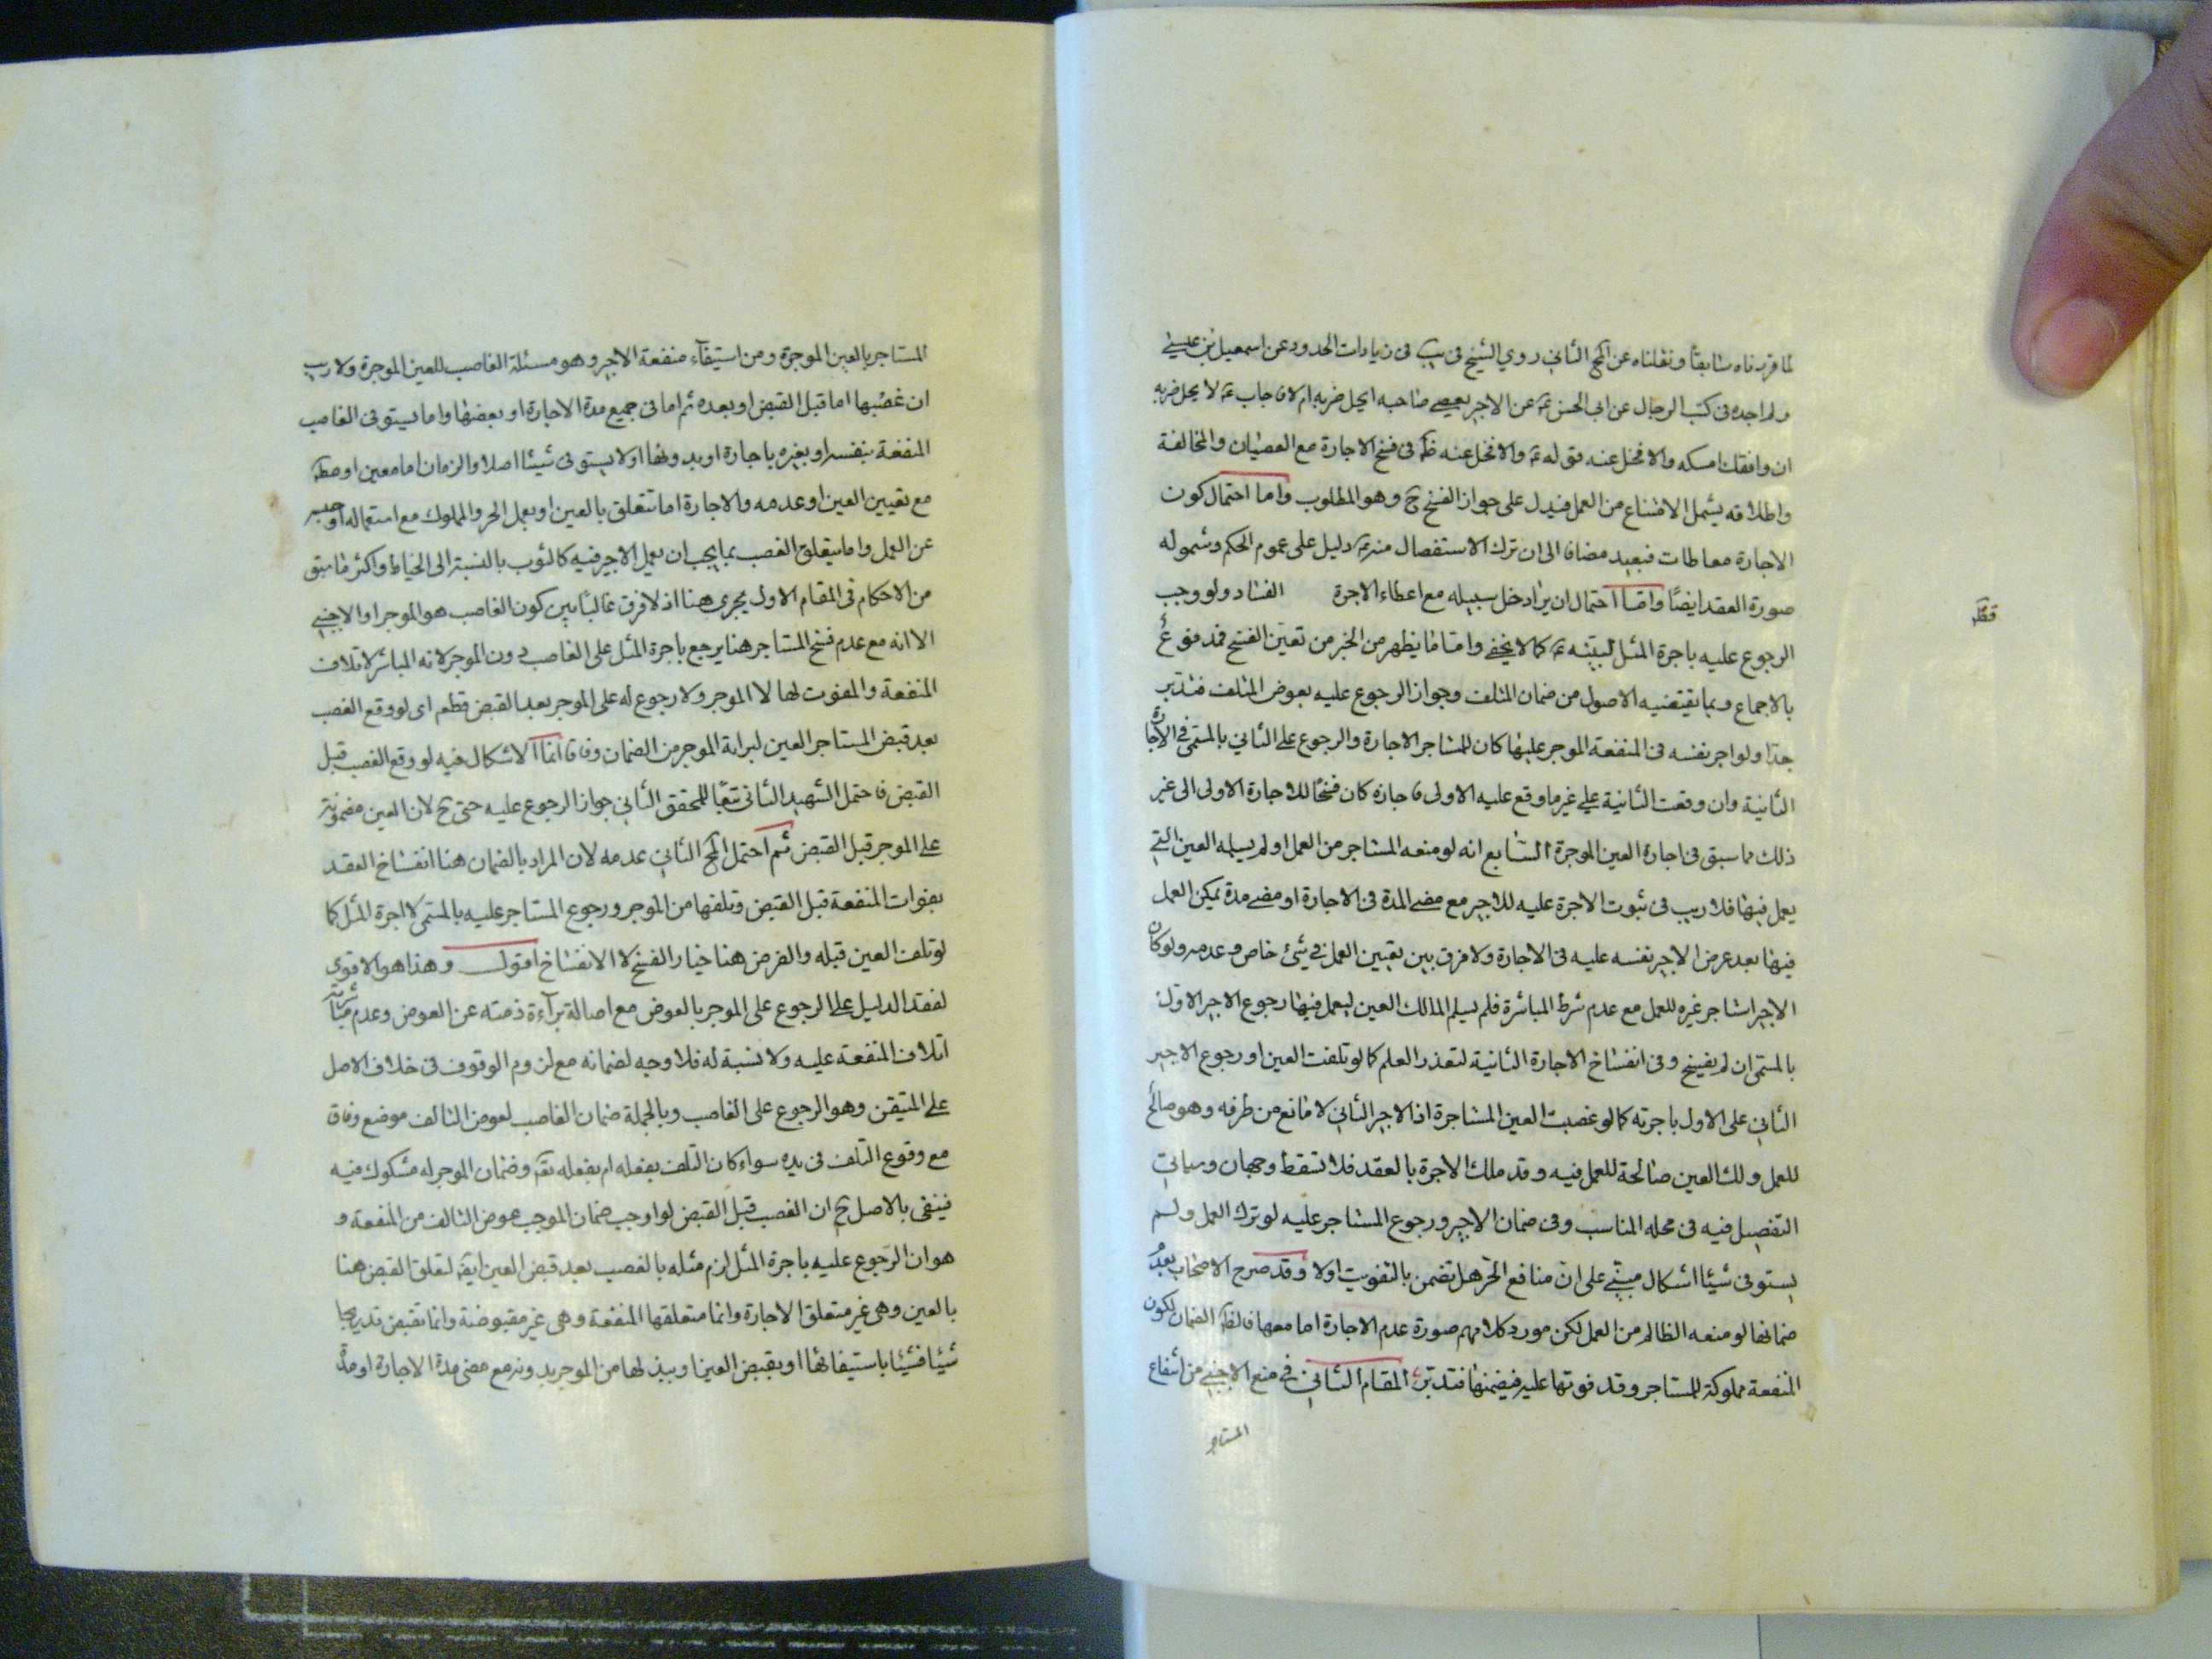 لما قررناه سابقاً ونقلناه عن المح الثاني روي الشيخ في يب في زيادات الحدود عن اسمعيل بن عيسى
ولم اجده في كتب الرجال عن ابي الحسن ع عن الاجير يعصي صاحبه ايحل ضربه ام لا فاجاب ع لا يحل ضربه
ان وافقك امسكه والا فخل عنه فقوله ع والا فخل عنه ظ في فسخ الاجارة مع العصيان والمخالفة
واطلاقه يشمل الامتناع من العمل فيدل على جواز الفسخ ح وهو المطلوب واما احتمال كون
الاجارة معاطات فبعيد مضافا الى ان ترك الاستفصال منه ع دليل على عموم الحكم وشموله
صورة العقد ايضاً واما احتمال ان يراد خل سبيله مع اعطاء الاجرة الفساد ولو وجب
الرجوع عليه باجرة المثل لبينه ع كما لا يخفى واما ما يظهر من الخبر من تعين الفسخ فمدفوع
بالاجماع وبما يقتضيه الاصول من ضمان المتلف وجواز الرجوع عليه بعوض المتلف فتدبر
جدا ولو اجر نفسه في المنفعة الموجر عليها كان للمستاجر الاجارة والرجوع على الثاني بالمسمى في الاجارة
الثانية وان وقعت الثانية على غير ما وقع عليه الاولى فاجازه كان فسخًا للاجارة الاولى الى غير
ذلك مما سبق في اجارة العين الموجرة السابع انه لو منعه المستاجر من العمل او لم يسلمه العين التي
يعمل فيها فلا ريب في ثبوت الاجرة عليه للاجير مع مضى المدة في الاجارة او مضى مدة يمكن العمل
فيها بعد عرض الاجير نفسه عليه في الاجارة ولا فرق بين تعيين العمل في شئ خاص وعدمه ولو كان
الاجير استاجر غيره للعمل مع عدم شرط المباشرة فلم يسلم المالك العين ليعمل فيها رجوع الاجير الاول
بالمسمى ان لم يفسخ وفي انفساخ الاجارة الثانية لتعذر العلم كما لو تلفت العين او رجوع الاجير
الثاني على الاول باجرته كما لو غصبت العين المستاجرة اذ الاجير الثاني لا مانع من طرفه وهو صالح
للعمل ولك العين صالحة للعمل فيه وقد ملك الاجرة بالعقد فلا تسقط وجهان وسياتي
التفصيل فيه في محله المناسب وفي ضمان الاجير ورجوع المستاجر عليه لو ترك العمل ولم
يستوفى شيئا اشكال مبني على ان منافع الحر هل تضمن بالتفويت اولا وقد صرح الاصحاب بعدم
ضمانها لو منعه الظالم من العمل لكن مورد كلامهم صورة عدم الاجارة اما معها فالظ الضمان لكون
المنفعة مملوكة للمستاجر وقد فوتها عليه فيضمنها فتدبر المقام الثاني في منع الاجنبي من انتفاع
المستاجر
المستاجر بالعين الموجرة ومن استيفاء منفعة الاجير وهو مسئلة الغاصب للعين الموجرة ولا ريب
ان غصبها اما قبل القبض او بعده ثم اما في جميع مدة الاجارة او بعضها واما يستوفى الغاصب
المنفعة بنفسه او بغيره باجارة او بدونها او لا يستوفى شيئا اصلا والزمان اما معين او مطلق
مع تعيين العين او عدمه والاجارة اما تتعلق بالعين او بعمل الحر والمملوك مع استعماله او حبسه
عن العمل واما يتعلق الغصب بما يجب ان يعمل الاجير فيه كالثوب بالنسبة الى الخياط واكثر ما سبق
من الاحكام في المقام الاول يجرى هنا اذ لا فرق غالبًا بين كون الغاصب هو الموجر او الاجنبي
الا انه مع عدم فسخ المستاجر هنا يرجع باجرة المثل على الغاصب دون الموجر لانه المباشر لاتلاف
المنفعة والمفوت لها لا الموجر ولا رجوع له على الموجر بعد القبض قطعا اى لو وقع الغصب
بعد قبض المستاجر العين لبراءة الموجر من الضمان وفاقا انما الاشكال فيه لو وقع الغصب قبل
القبض فاحتمل الشهيد الثاني تبعًا للمحقق الثاني جواز الرجوع عليه حتى ح لان العين مضمونة
على الموجر قبل القبض ثم احتمل المح الثاني عدمه لان المراد بالضمان هنا انفساخ العقد
بفوات المنفعة قبل القبض وتلفها من الموجر ورجوع المستاجر عليه بالمسمى لا اجرة المثل كما
لو تلفت العين قبله والفرض هنا خيار الفسخ لا الانفساخ اقول وهذا هو الاقوى
لفقد الدليل على الرجوع على الموجر بالعوض مع اصالة براءة ذمته عن العوض وعدم
اتلاف المنفعة عليه ولا نسبة له فلا وجه لضمانه مع لزوم الوقوف في خلاف الاصل
على المتيقن وهو الرجوع على الغاصب وبالجملة ضمان الغاصب لعوض التالف موضع وفاق
مع وقوع التلف في يده سواء كان التلف بفعله ام بفعله تع وضمان الموجر له مشكوك فيه
فينفى بالاصل ح ان الغصب قبل القبض لو اوجب ضمان الموجب عوض التالف من المنفعة و
هو ان الرجوع عليه باجرة المثل لزم مثله بالغصب بعد قبض العين ايض لتعلق القبض هنا
بالعين وهي غير متعلق الاجارة وانما متعلقها المنفعة وهي غير مقبوضة وانما تقبض تدريجا
شيئا فشيئا باستيفائها او بقبض العين او ببذلها من الموجر بدونه مع مضى مدة الاجارة او مدة